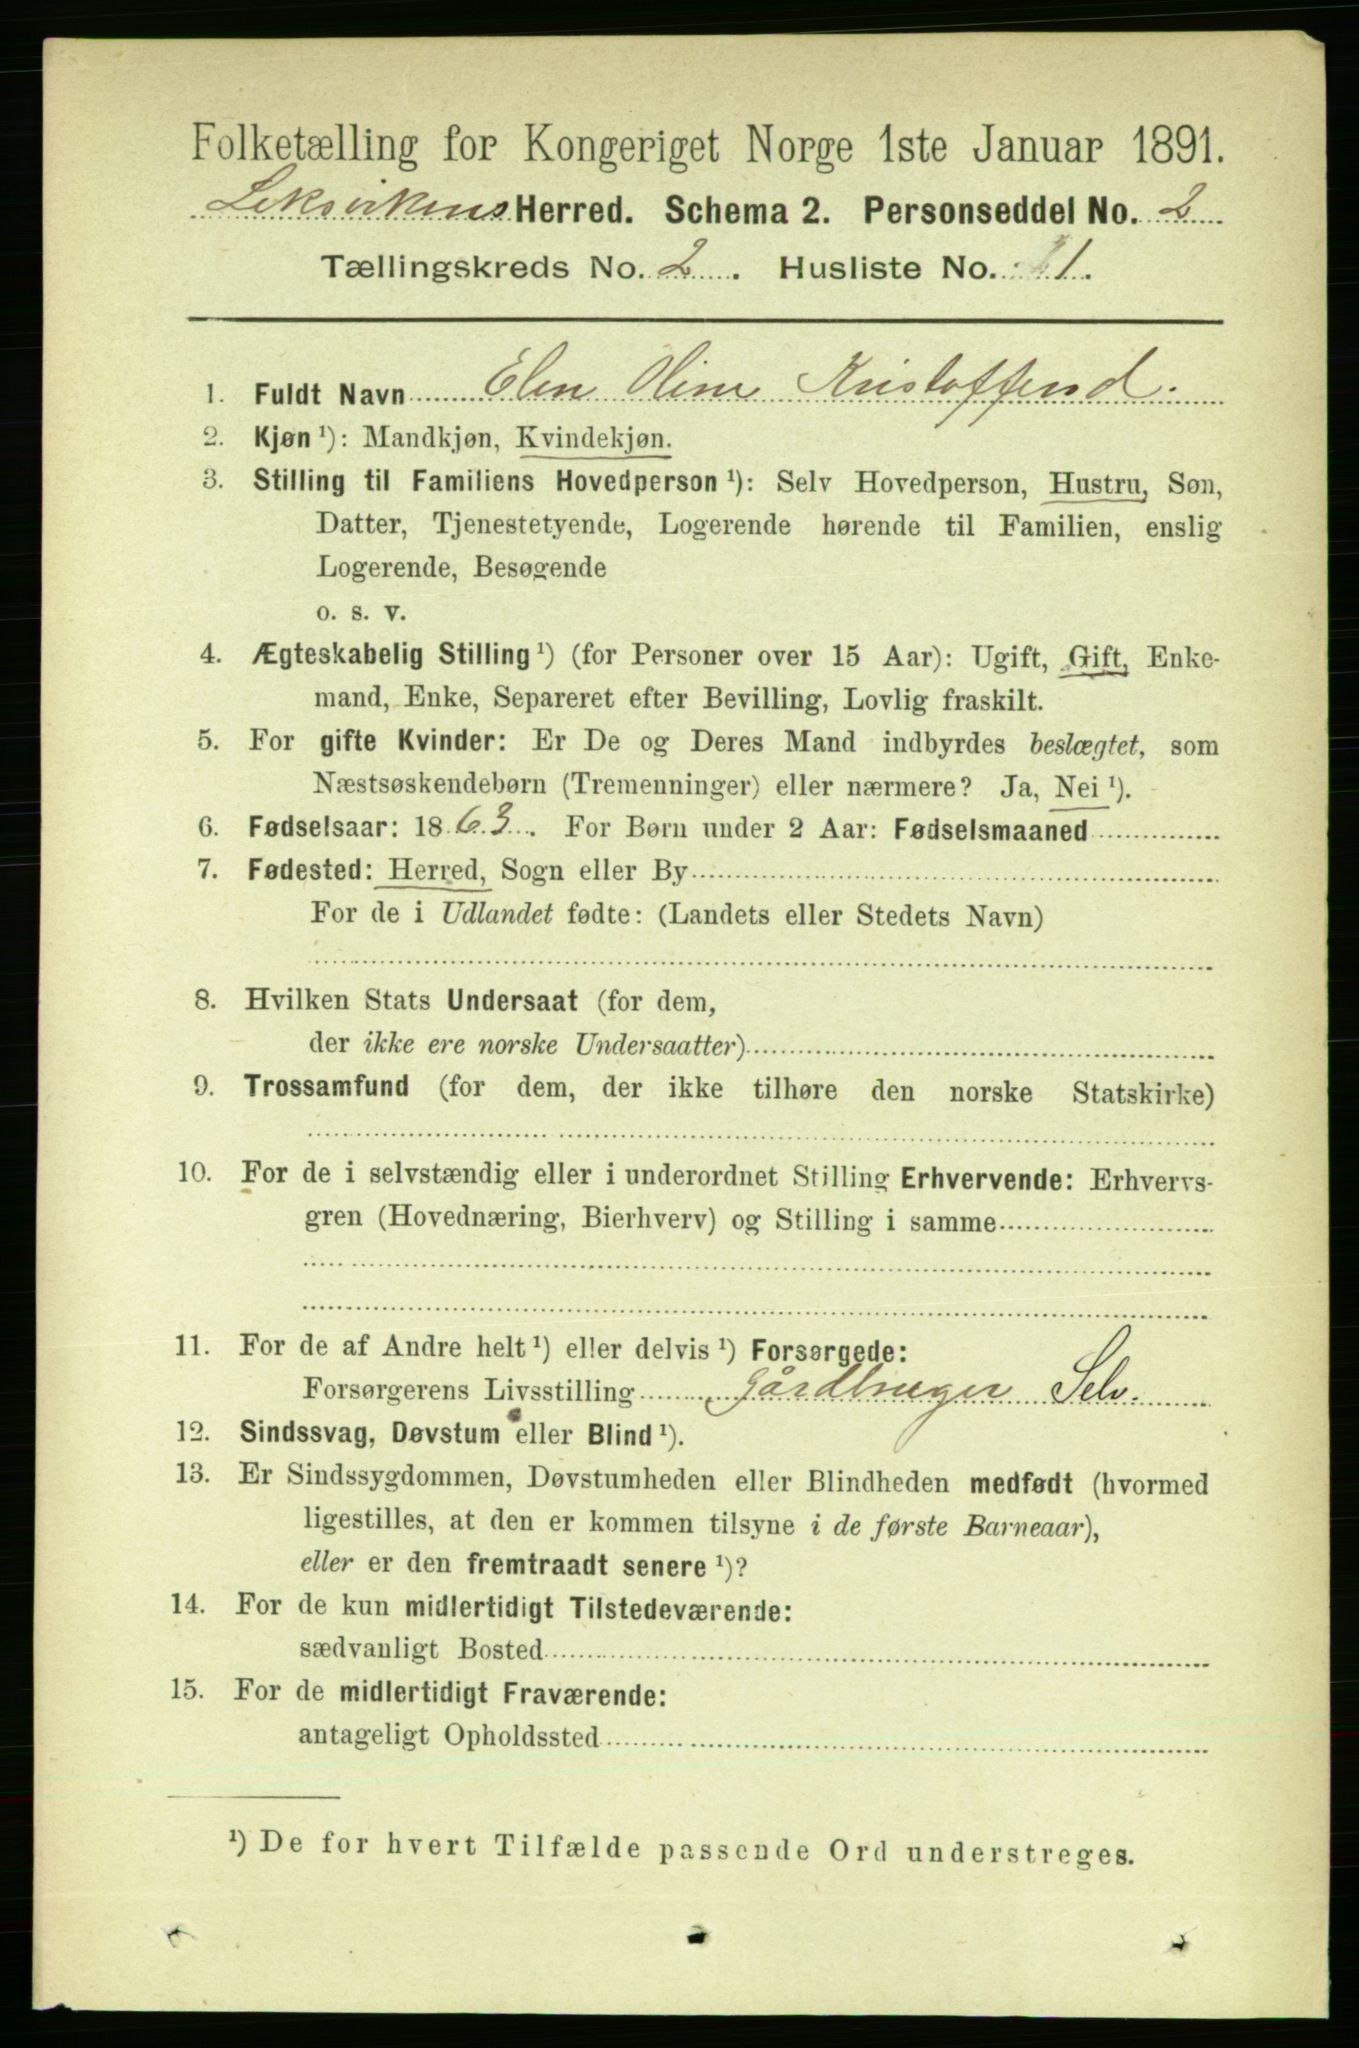 Folketælling for Kongeriget Norge 1ste Januar 1891.
Leksvikens Herred. Schema 2. Personseddel No. 2
Tællingskreds No. 2. Husliste No. 1.
1. Fuldt Navn Elen Oline Kristoffersd.
2. Kjøn ¹): Mandkjøn, Kvindekjøn.
3. Stilling til Familiens Hovedperson ¹): Selv Hovedperson, Hustru, Søn,
Datter, Tjenestetyende, Logerende hørende til Familien, enslig
Logerende, Besøgende
o. s. v.
4. Ægteskabelig Stilling ¹) (for Personer over 15 Aar): Ugift, Gift, Enke-
mand, Enke, Separeret efter Bevilling, Lovlig fraskilt.
5. For gifte Kvinder: Er De og Deres Mand indbyrdes beslægtet, som
Næstsøskendebørn (Tremenninger) eller nærmere? Ja, Nei ¹).
6. Fødselsaar: 1863. For Børn under 2 Aar: Fødselsmaaned
7. Fødested: Herred, Sogn eller By
For de i Udlandet fødte: (Landets eller Stedets Navn)
8. Hvilken Stats Undersaat (for dem,
der ikke ere norske Undersaatter)
9. Trossamfund (for dem, der ikke tilhøre den norske Statskirke)
10. For de i selvstændig eller i underordnet Stilling Erhvervende: Erhvervs-
gren (Hovednæring, Bierhverv) og Stilling i samme
11. For de af Andre helt ¹) eller delvis ¹) Forsørgede:
Forsørgerens Livsstilling Gårdbruger Selv.
12. Sindssvag, Døvstum eller Blind ¹).
13. Er Sindssygdommen, Døvstumheden eller Blindheden medfødt (hvormed
ligestilles, at den er kommen tilsyne i de første Barneaar),
eller er den fremtraadt senere ¹)?
14. For de kun midlertidigt Tilstedeværende:
sædvanligt Bosted
15. For de midlertidigt Fraværende:
antageligt Opholdssted
¹) De for hvert Tilfælde passende Ord understreges.